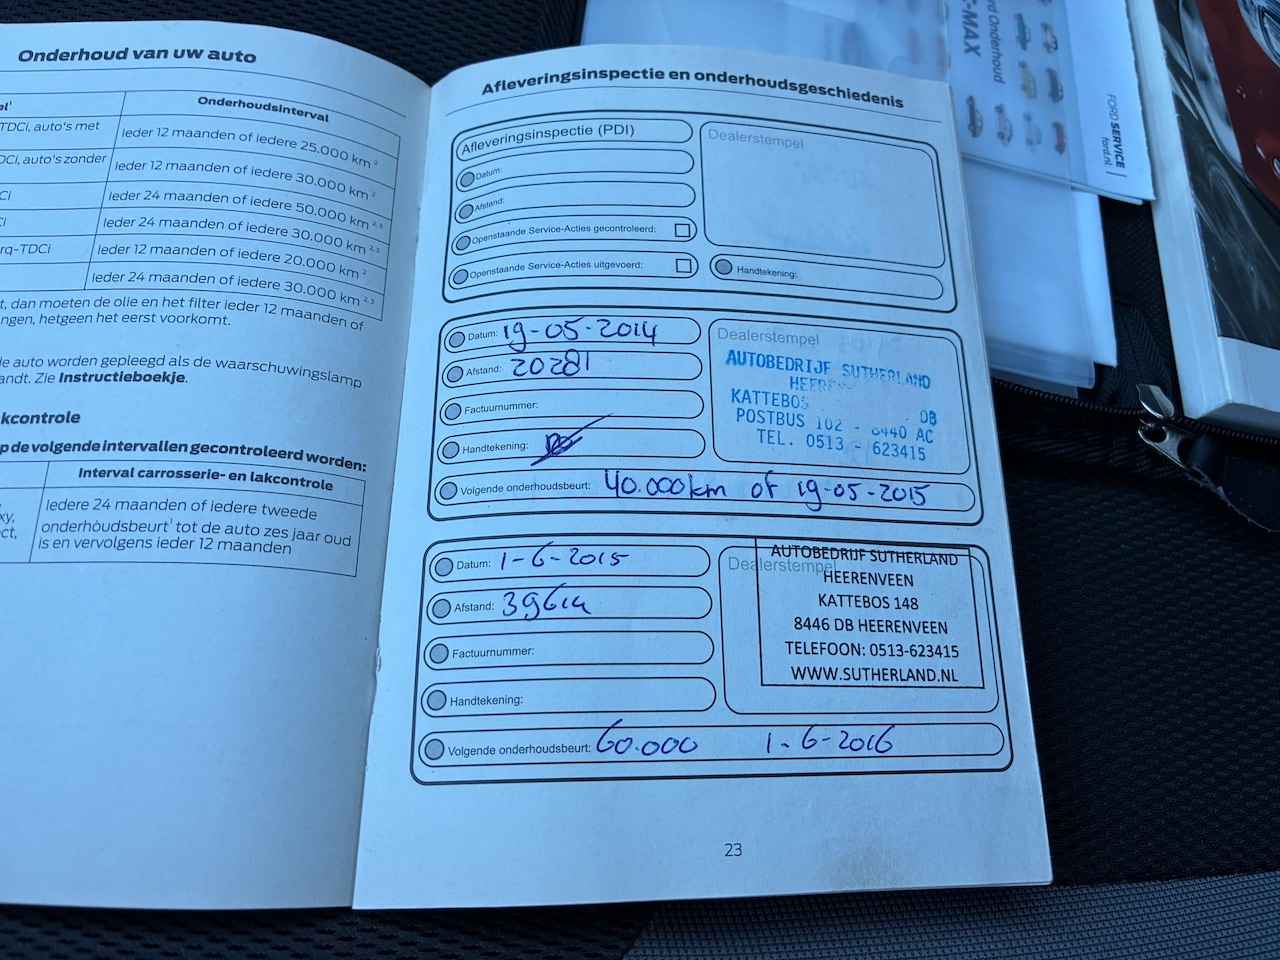 Onderhoud van uw auto
el¹ Onderhoudsinterval
TDCi, auto's met Ieder 12 maanden of iedere 25.000 km ²
DCi, auto's zonder Ieder 12 maanden of iedere 30.000 km ²
Ci Ieder 24 maanden of iedere 50.000 km ²,³
Ci Ieder 24 maanden of iedere 30.000 km ²,³
rq-TDCi Ieder 12 maanden of iedere 20.000 km ²
Ieder 24 maanden of iedere 30.000 km ²,³
t, dan moeten de olie en het filter ieder 12 maanden of
ngen, hetgeen het eerst voorkomt.
de auto worden gepleegd als de waarschuwingslamp
andt. Zie Instructieboekje.
kcontrole
p de volgende intervallen gecontroleerd worden:
Interval carrosserie- en lakcontrole
xy,
ct,
Iedere 24 maanden of iedere tweede
onderhoudsbeurt¹ tot de auto zes jaar oud
is en vervolgens ieder 12 maanden
Afleveringsinspectie en onderhoudsgeschiedenis
Afleveringsinspectie (PDI)
Datum:
Afstand:
Openstaande Service-Acties gecontroleerd:
Openstaande Service-Acties uitgevoerd:
Dealerstempel
Handtekening:
Datum: 19-05-2014
Afstand: 20281
Factuurnummer:
Handtekening:
Dealerstempel
AUTOBEDRIJF SUTHERLAND
KATTEBOS DB
POSTBUS 102 - 8440 AC
TEL. 0513 - 623415
Volgende onderhoudsbeurt: 40.000km of 19-05-2015
Datum: 1-6-2015
Afstand:
Factuurnummer:
Handtekening:
Dealerstempel
AUTOBEDRIJF SUTHERLAND
HEERENVEEN
KATTEBOS 148
8446 DB HEERENVEEN
TELEFOON: 0513-623415
WWW.SUTHERLAND.NL
Volgende onderhoudsbeurt: 60.000 1-6-2016
23
-MAX
rd Onderhoud
FORD SERVICE
ford.nl